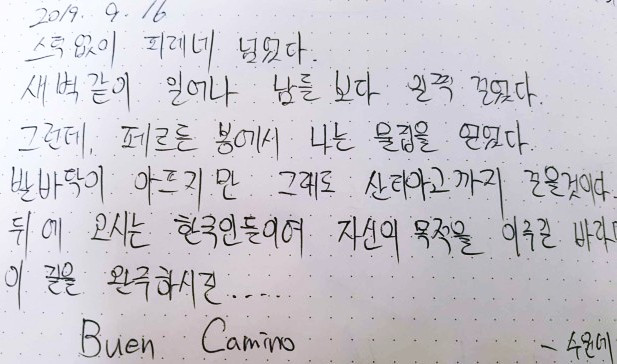 2019. 9. 16
스틱 없이 피레네 넘었다.
새벽같이 일어나 남들 보다 일찍 걸었다.
그런데, 페르돈 봉에서 나는 물집을 얻었다.
발바닥이 아프지만 그래도 산티아고까지 걸을것이다.
뒤에 오시는 한국인들이여 자신의 목적을 이루길 바라며
이 길을 완주하시길.....
Buen Camino - 수원에